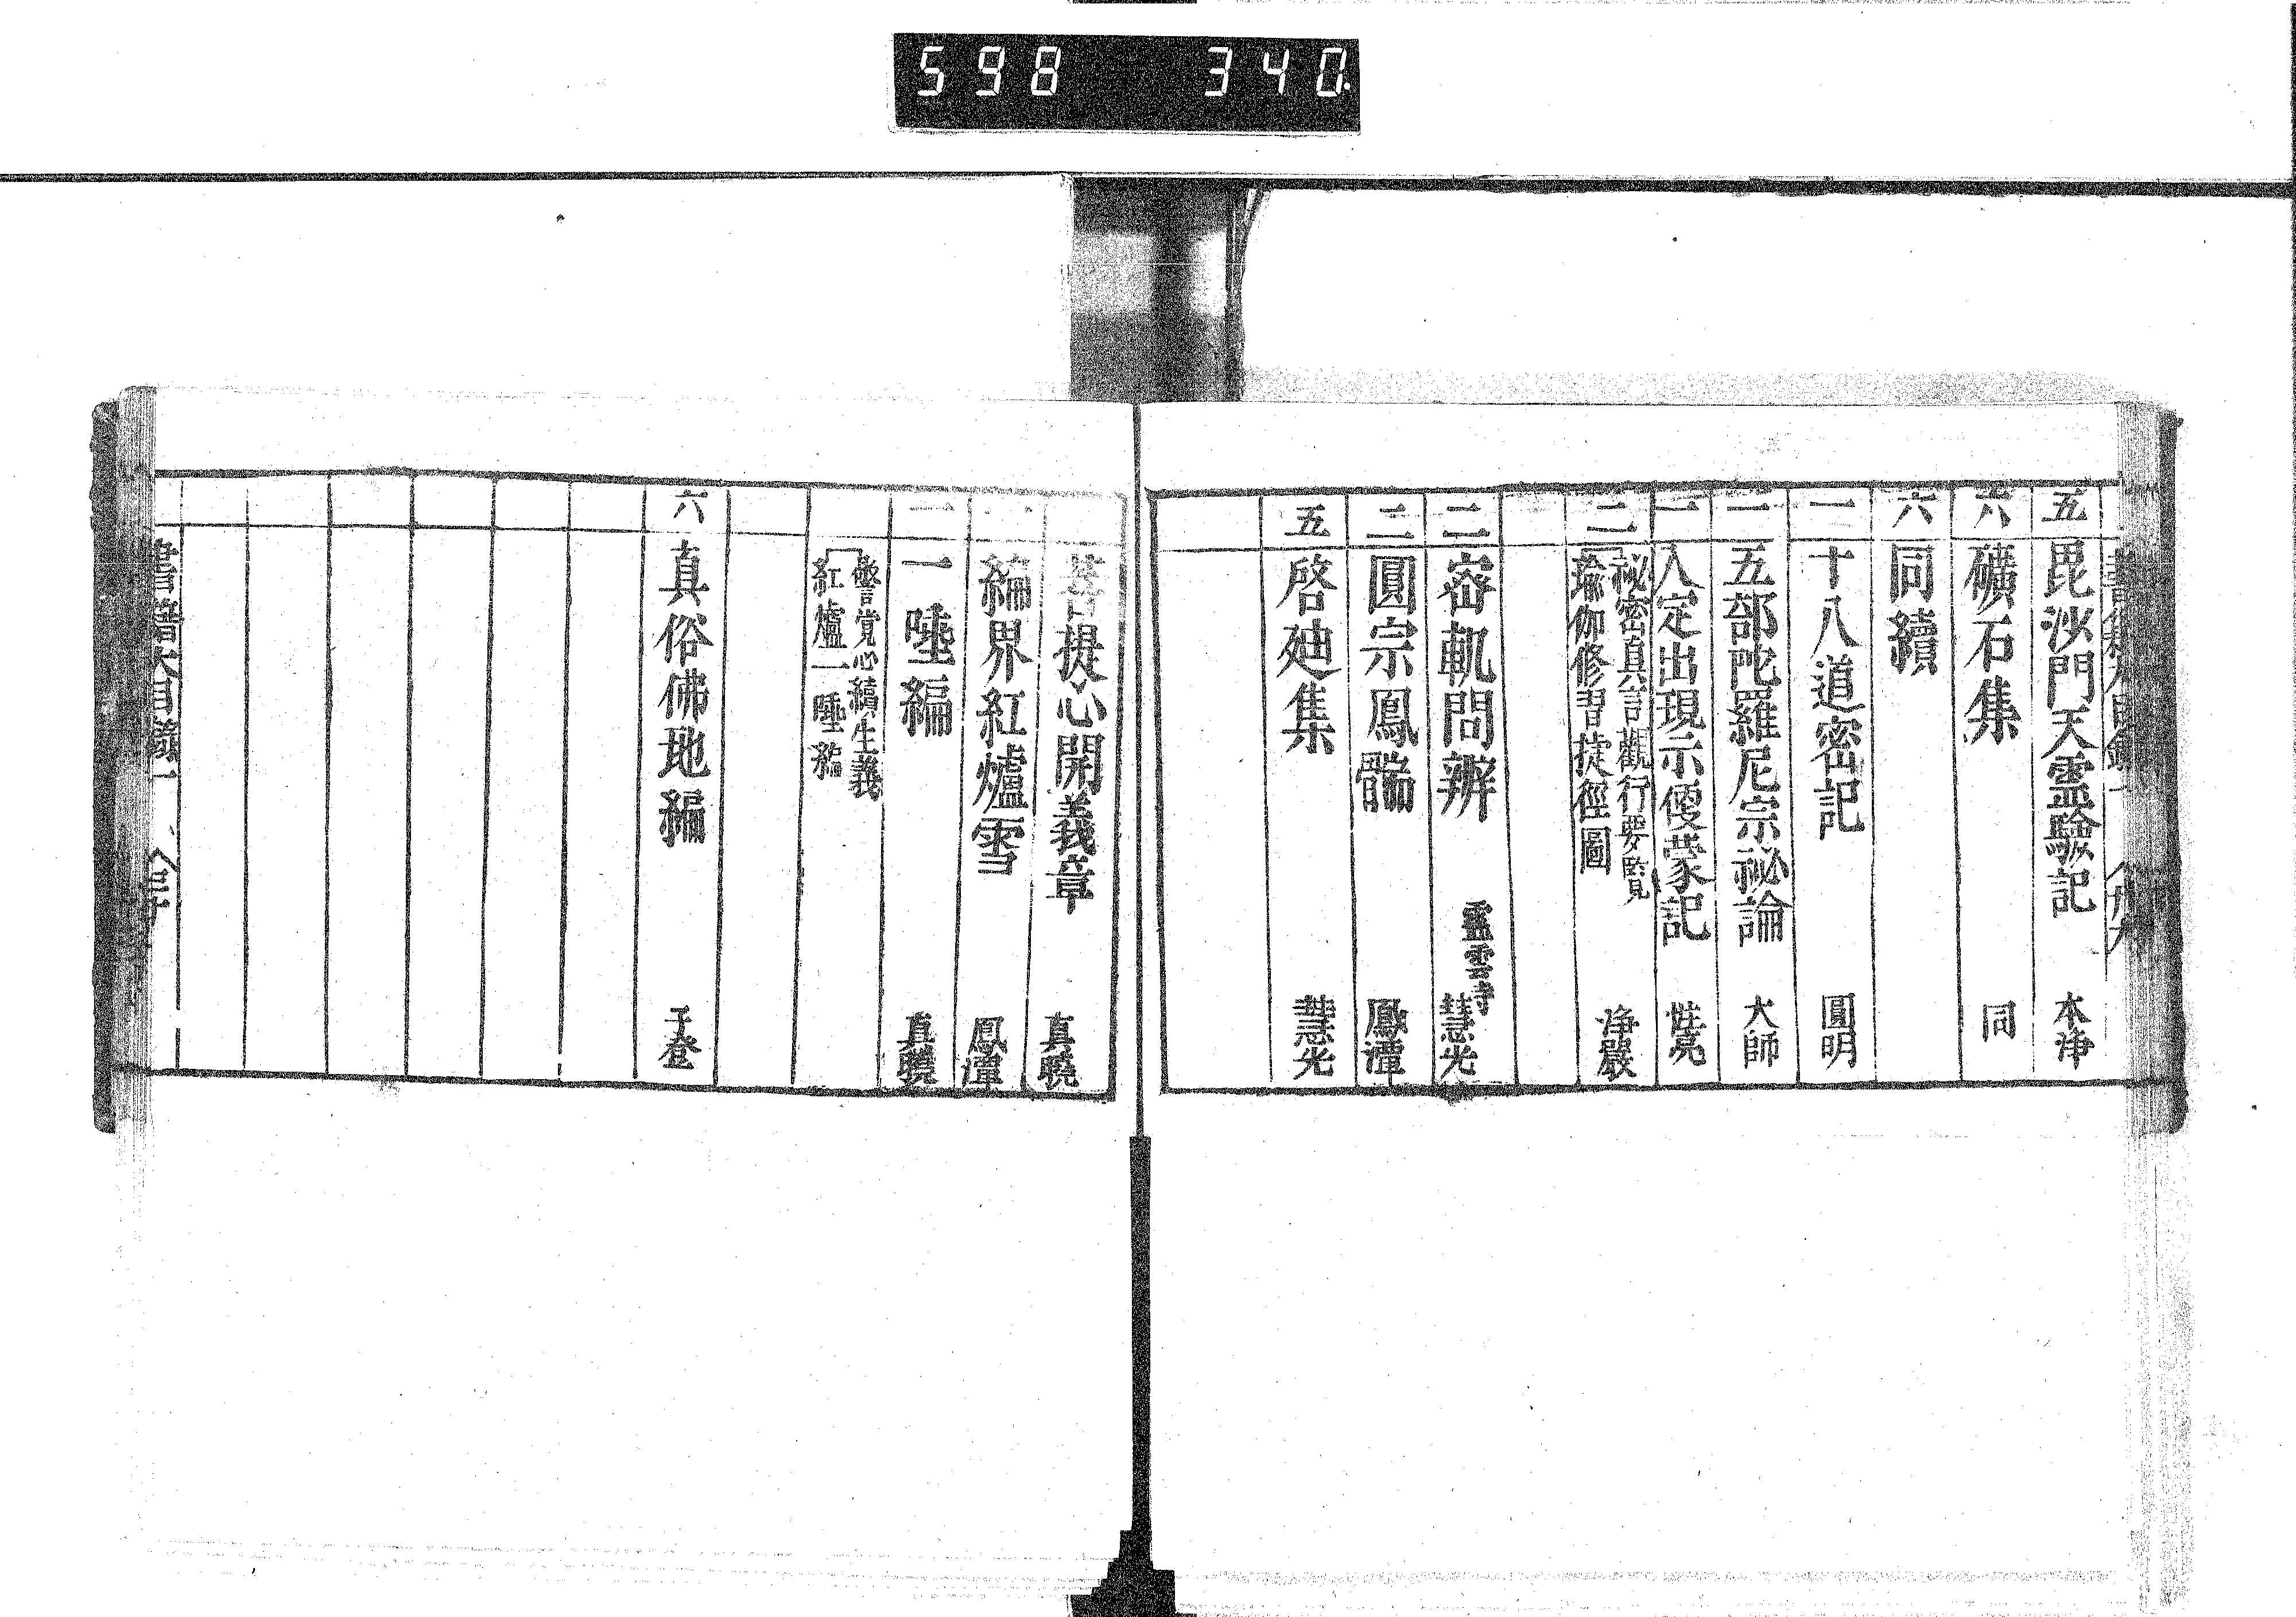 598 340
五 毘沙門天靈驗記 本浄
六 礦石集 同
六 同續
一 十八道密記 圓明
一 五部陀羅尼宗祕論 大師
一 入定出現示優蒙記 性亮
二 祕密真言觀行要覧
瑜伽修習捷徑圖 浄嚴
二 密軌問辨 靈雲寺 慧光
二 圓宗鳳髓 鳳潭
五 啓廸集 慧光
菩提心開義章 真曉
緬界紅爐雪 鳳潭
二 一唾編 真曉
警覚心續生義
紅爐一唾編
六 真俗佛地編 子登
書籍大目録一